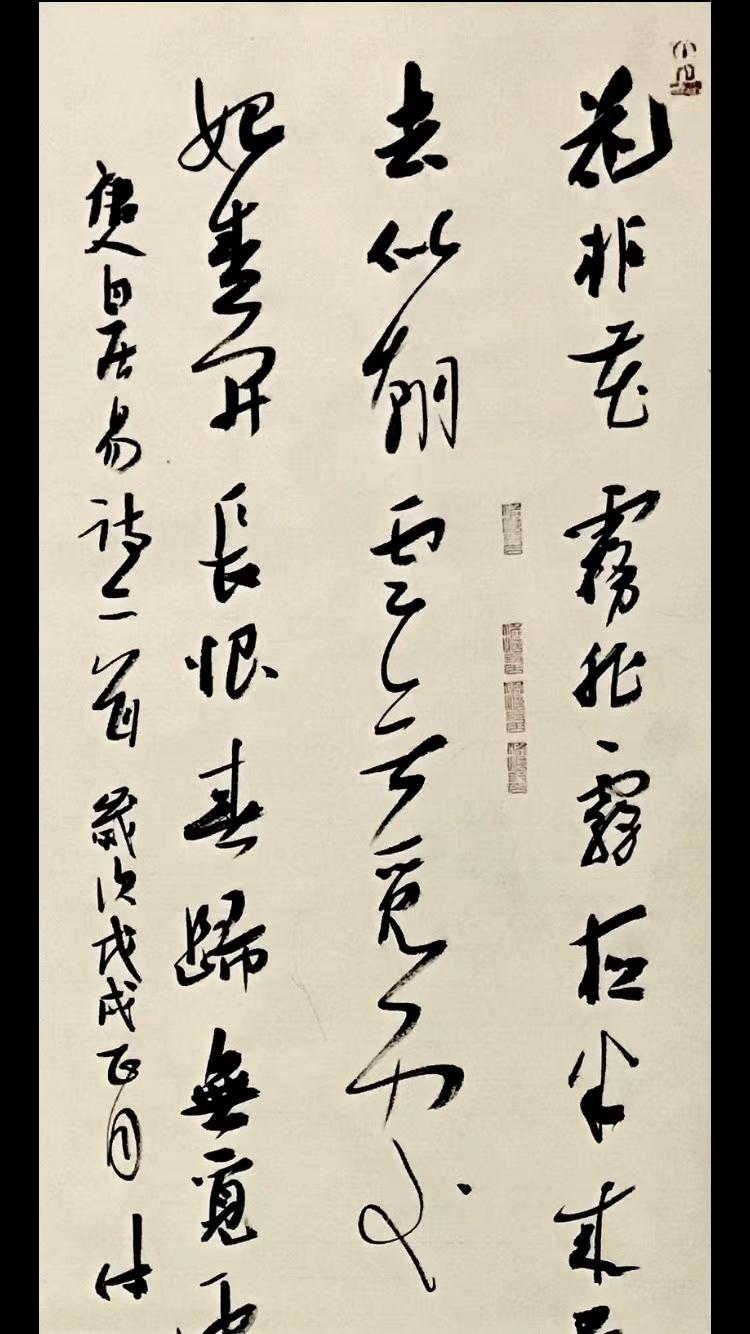 花非花霧非霧夜半来
去似朝雲无覓處
始盛開長恨春歸無覓
唐人白居易詩二首歲次戊戌正月